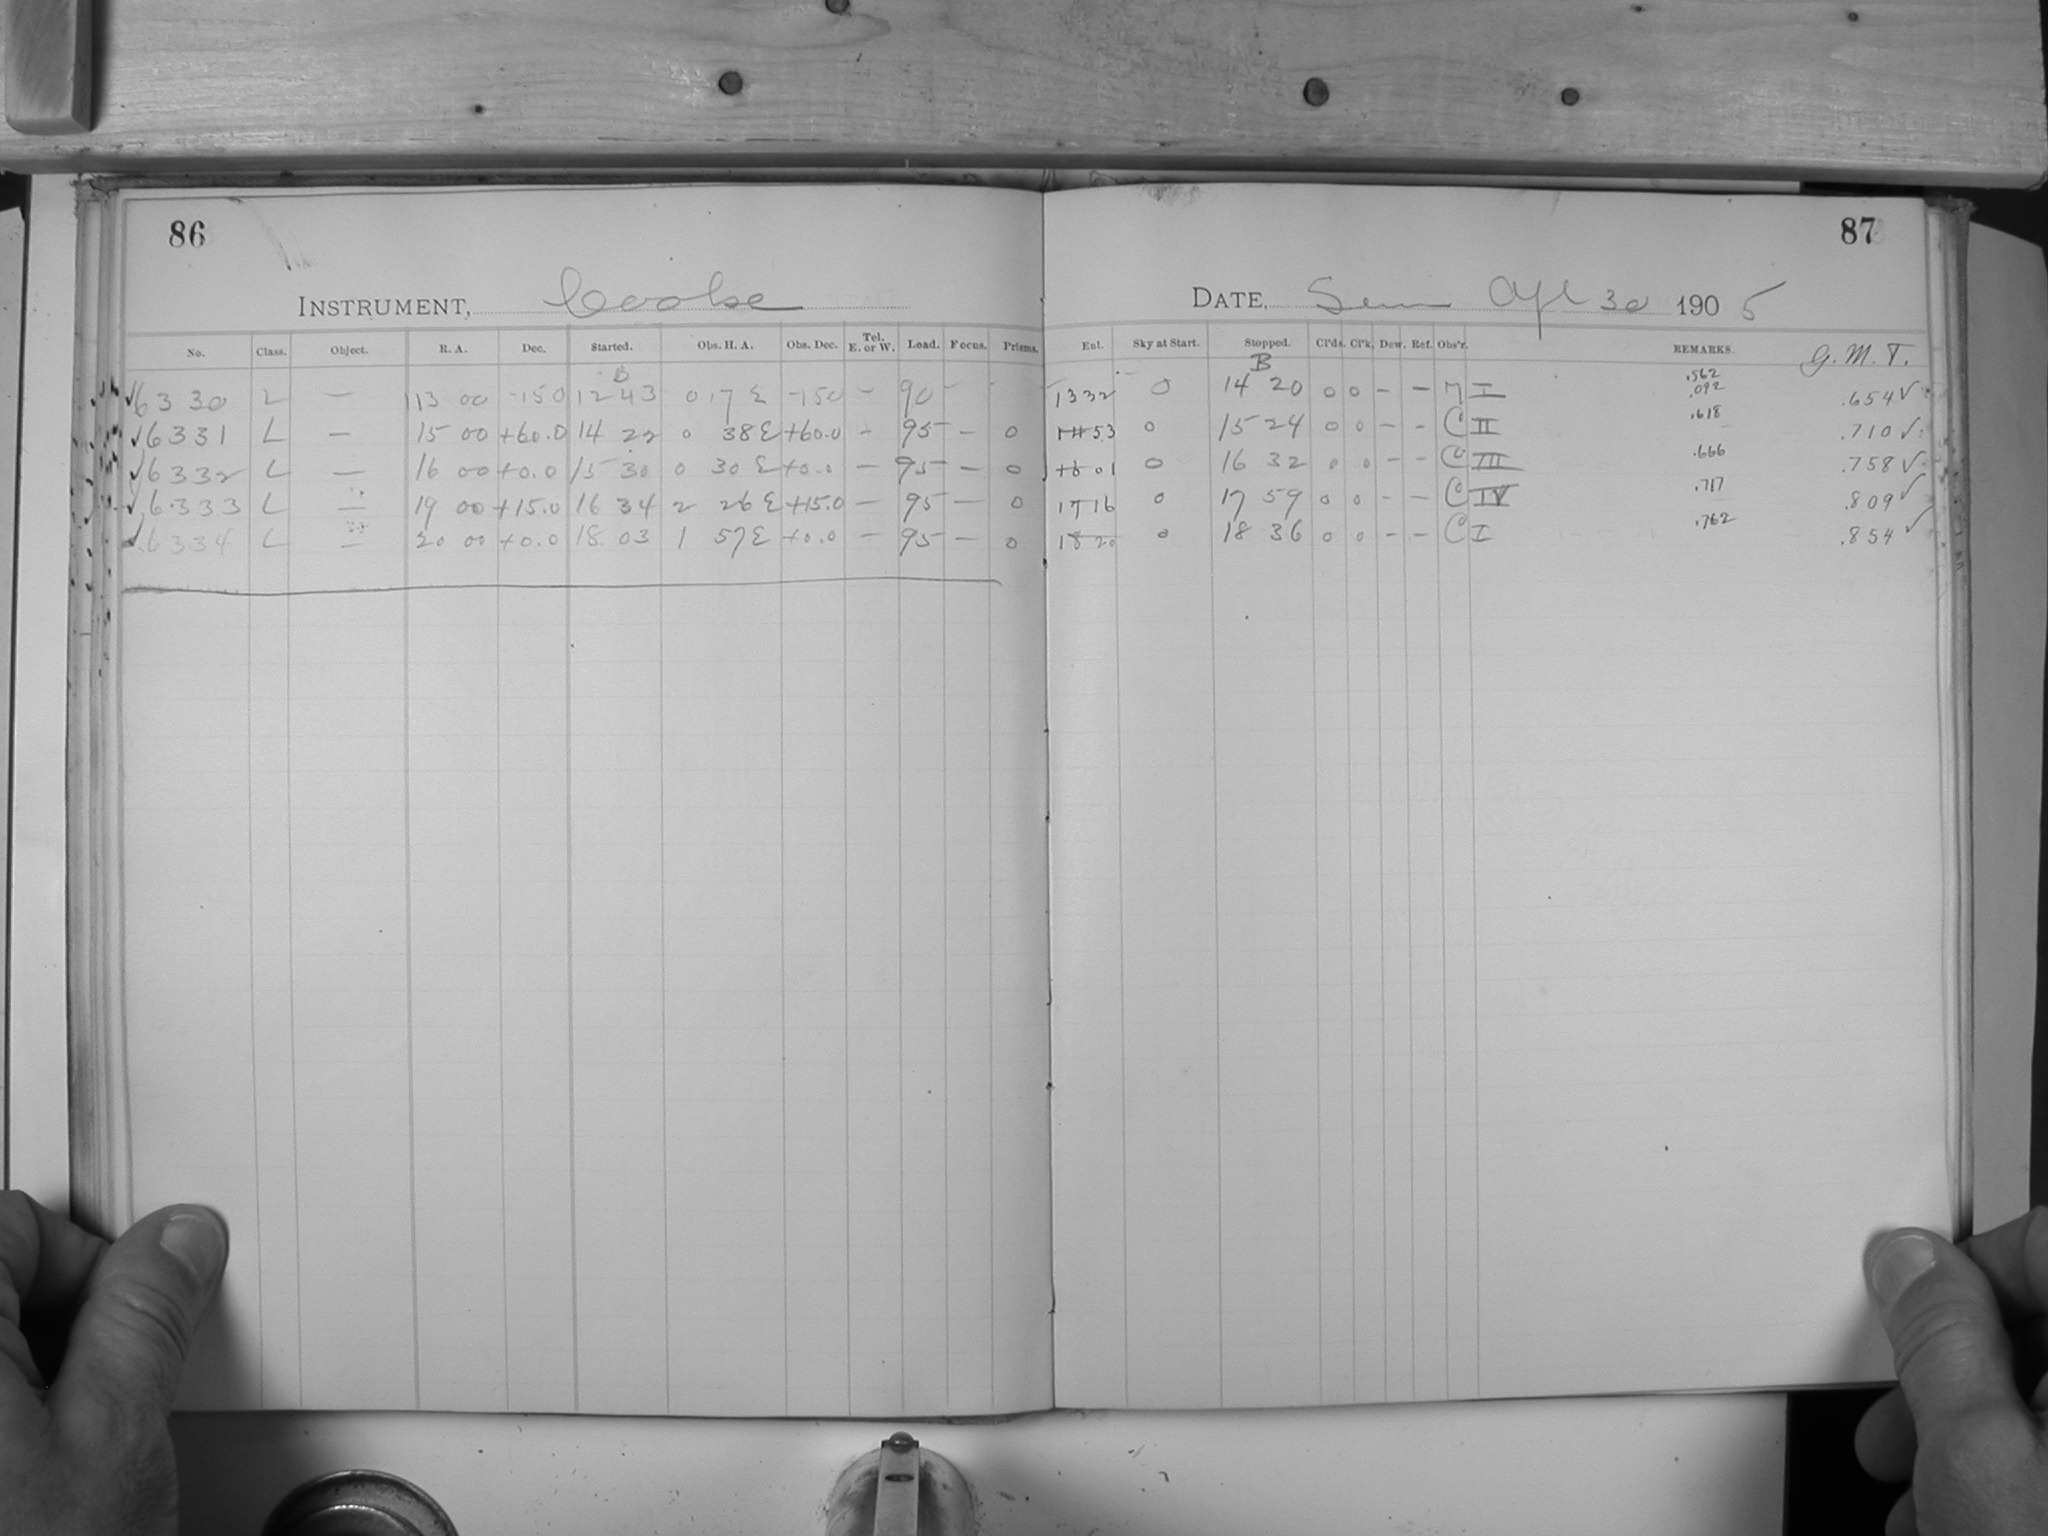 86
INSTRUMENT, Cooke
No. Class. Object. R. A. Dec. Started. Obs. H. A. Obs. Dec. Tel. E. or W. Load. Focus. Prisms.
B
✓6330 L — 13 00 -15 0 12 43 0 17 E -15 0 — 90 —
✓6331 L — 15 00 +60.0 14 22 0 38 E +60.0 — 95 — 0
✓6332 L — 16 00 +0.0 15 30 0 30 E +0.0 — 95 — 0
✓6333 L — 19 00 +15.0 16 34 2 26 E +15.0 — 95 — 0
✓6334 L — 20 00 +0.0 18 03 1 57 E +0.0 — 95 — 0
87
DATE, Sun Apl 30 1905
Ent. Sky at Start. Stopped. Cl'ds. Cl'k. Dew. Ref. Obs'r. REMARKS. G. M. T.
B
1332 0 14 20 0 0 — — I .562 .092 .654 ✓
1453 0 15 24 0 0 — — C II .618 .710 ✓
1601 0 16 32 0 0 — — C III .666 .758 ✓
1716 0 17 59 0 0 — — C IV .717 .809 ✓
1820 0 18 36 0 0 — — C I .762 .854 ✓